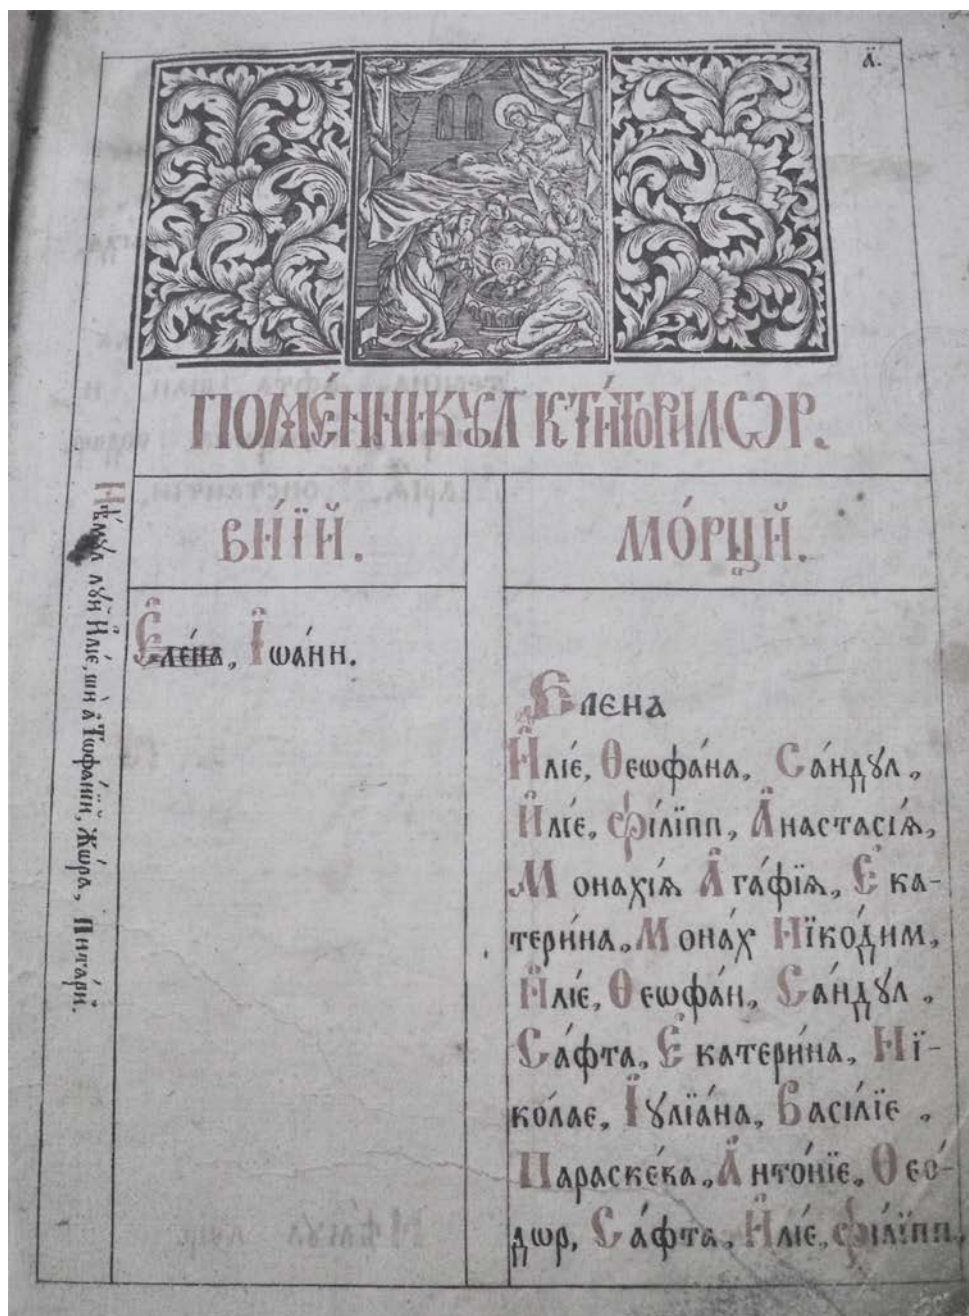 а҃.
ПОМЕ́ННИКꙊЛ КТИ́ТОРИЛѠР.
ВИ́ЇЙ.
МО́РЦИЙ.
Нѣ́мꙋл лꙋй И҆лі́е, шѝ а̀ Тѡфа́нїй, Жѡ́ра, Пита́рй.
Е҆ле́на, І҆ѡа́нн.
Елена
И҆лі́е, Ѳеѡфа́на, Са́ндꙋл,
И҆лі́е, Фі́лїпп, А҆настасі́ѧ,
Монахі́ѧ А҆га́фїѧ, Е҆ка-
тери́на, Мона́х Нїко́дим,
И҆лі́е, Ѳеѡфа́н, Са́ндꙋл,
Са́фта, Е҆катери́на, Нї-
ко́лае, І҆ꙋлїа́на, Васі́лїе,
Параске́ва, А҆нто́нїе, Ѳео́-
дѡр, Са́фта, И҆лі́е, Фі́лїпп,